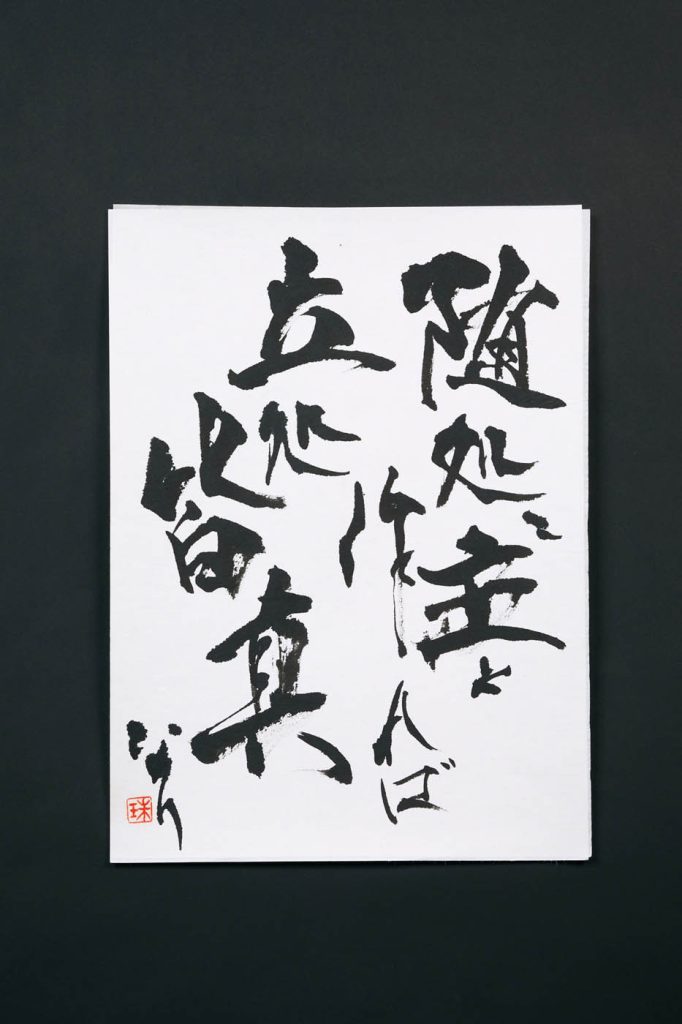 随処に主と
作れば
立処
皆真
珠